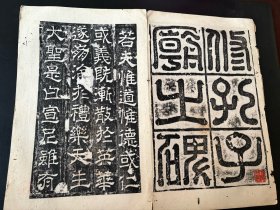 修孔子
廟之碑
若夫惟道惟德或仁
或義既漸散於英華
遂於禮樂
大聖是曰宣尼雖有